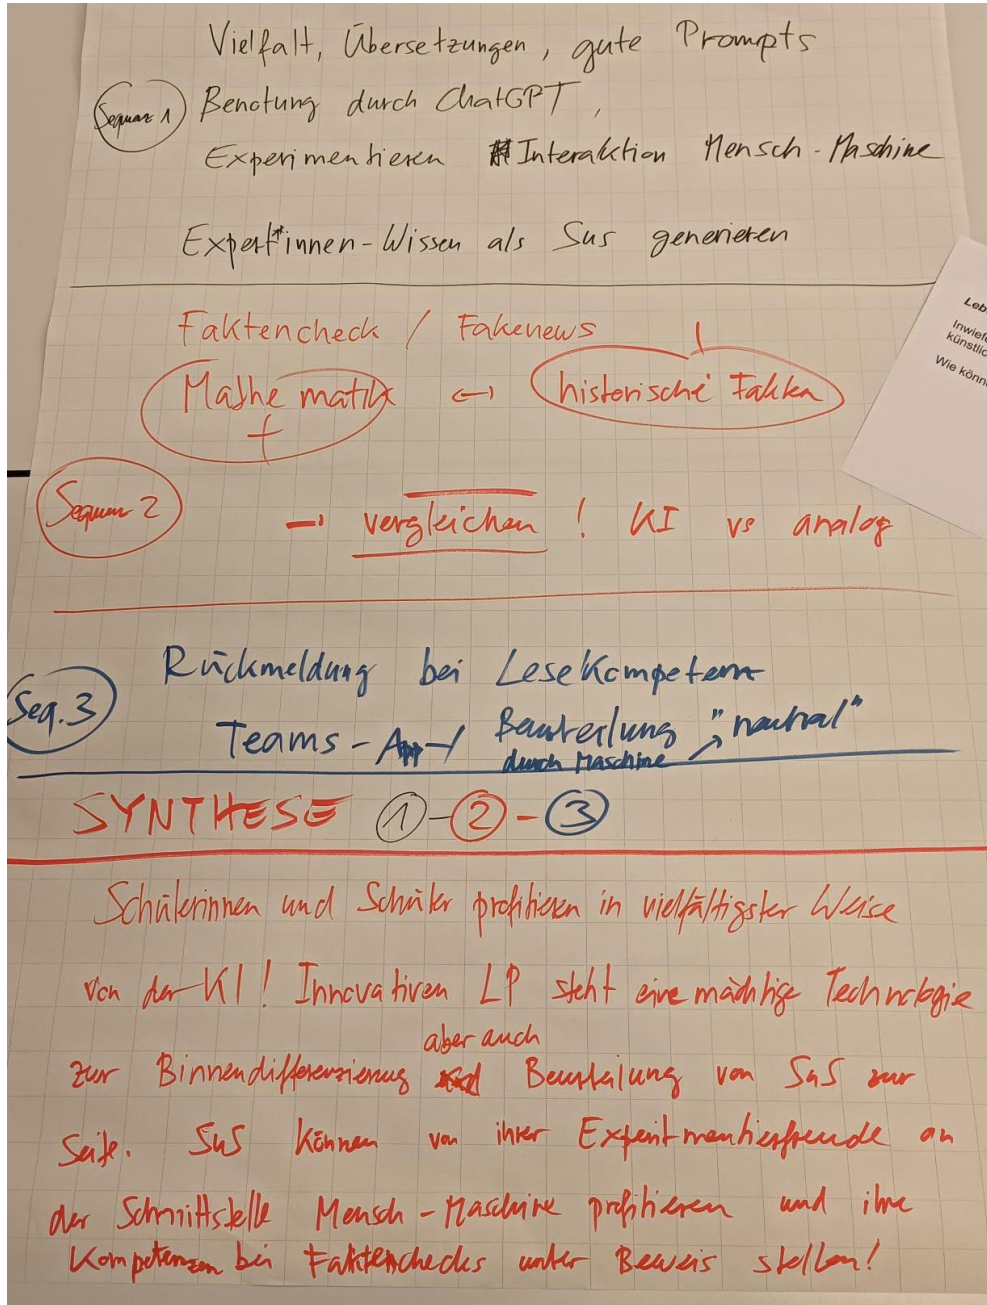 Vielfalt, Übersetzungen, gute Prompts
Sequenz 1
Benotung durch ChatGPT,
Experimentieren Interaktion Mensch-Maschine
Expert*innen-Wissen als SuS generieren
Faktencheck / Fakenews
Mathematik ↔ historische Fakten
Sequenz 2
→ vergleichen! KI vs analog
Seq. 3
Rückmeldung bei Lesekompetenz
Teams-App Beurteilung "neutral"
durch Maschine
SYNTHESE 1-2-3
Schülerinnen und Schüler profitieren in vielfältigster Weise
von der KI! Innovativen LP steht eine mächtige Technologie
aber auch
zur Binnendifferenzierung Beurteilung von SuS zur
Seite. SuS können von ihrer Experimentierfreude an
der Schnittstelle Mensch-Maschine profitieren und ihre
Kompetenzen bei Faktenchecks unter Beweis stellen!
Leb
Inwief
künstlic
Wie könn